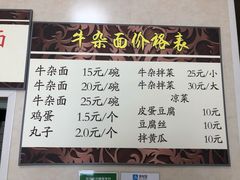 面
牛杂面价格表
牛杂面 15元/碗
牛杂面 20元/碗
牛杂面 25元/碗
鸡蛋 1.5元/个
丸子 2.0元/个
牛杂拌菜 25元/小
牛杂拌菜 30元/大
凉菜
皮蛋豆腐 10元
豆腐丝 10元
拌黄瓜 10元